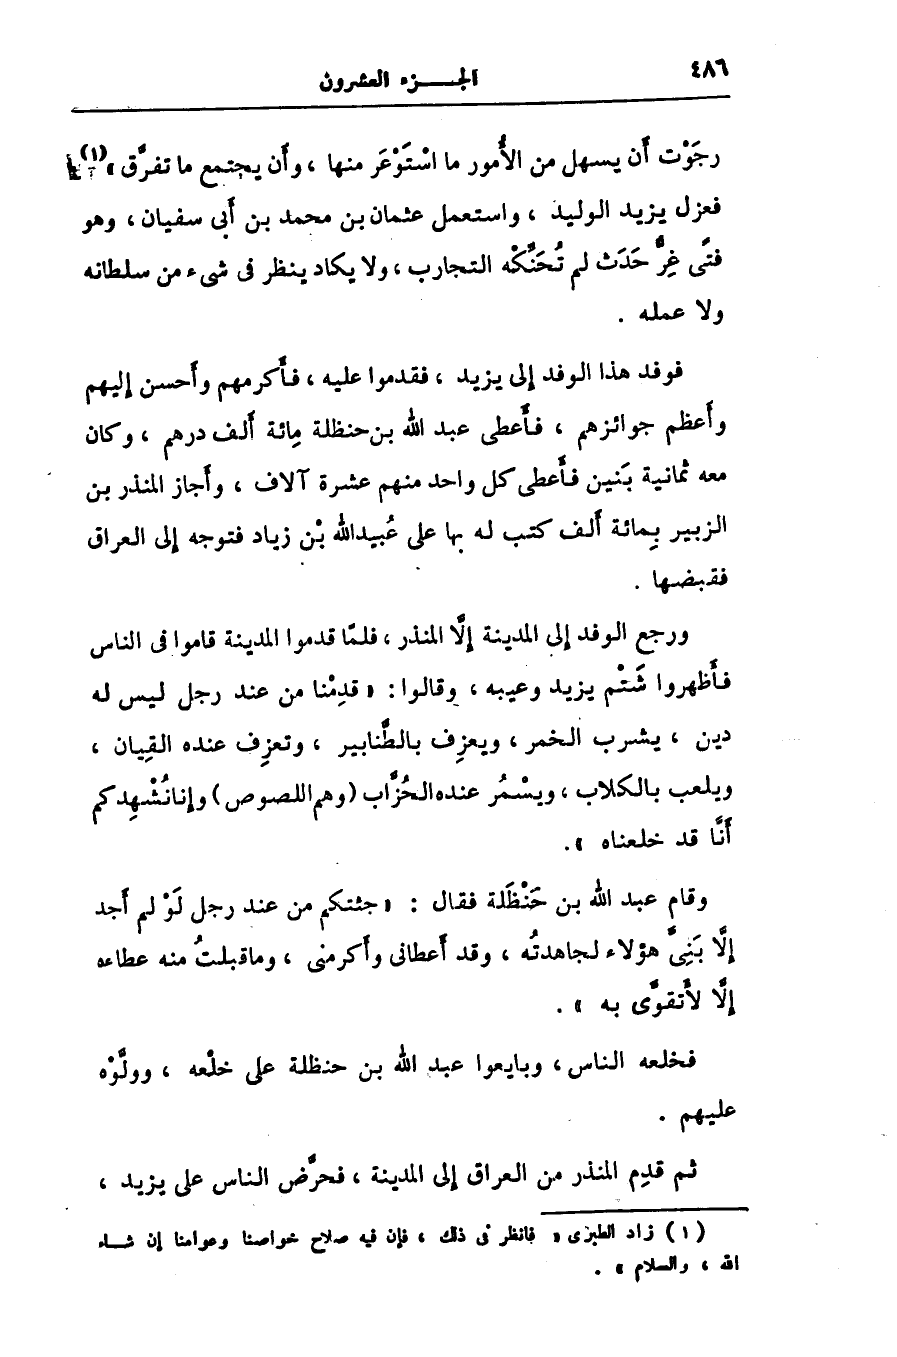 ٤٨٦
الجـــزء العشرون
رجَوْت أَن يسهل من الأُمور ما اسْتَوْعَر منها ، وأَن يجتمع ما تفرَّق » (١)
فعزل يزيد الوليد ، واستعمل عثمان بن محمد بن أَبى سفيان ، وهو
فتًى غِرٌّ حَدَث لم تُحَنِّكْه التجارب ، ولا يكاد ينظر فى شىء من سلطانه
ولا عمله .
فوفد هذا الوفد إلى يزيد ، فقدموا عليه ، فأَكرمهم وأَحسن إليهم
وأَعظم جوائزهم ، فأَعطى عبد الله بن حنظلة مِائة أَلف درهم ، وكان
معه ثمانية بَنين فأَعطى كل واحد منهم عشرة آلاف ، وأَجاز المنذر بن
الزبير بِمائة أَلف كتب له بها على عُبيدالله بْن زياد فتوجه إلى العراق
فقبضها .
ورجع الوفد إلى المدينة إلَّا المنذر ، فلمَّا قدموا المدينة قاموا فى الناس
فأَظهروا شَتْم يزيد وعيبه ، وقالوا : « قدِمْنا من عند رجل ليس له
دين ، يشرب الخمر ، ويعزِف بالطَّنابير ، وتعزِف عنده القِيان ،
ويلعب بالكلاب ، ويسْمُر عنده الخُرَّاب (وهم اللصوص) وإنا نُشْهِدكم
أَنَّا قد خلعناه » .
وقام عبد الله بن حَنْظَلة فقال : « جئتكم من عند رجل لَوْ لم أَجد
إلَّا بَنِىَّ هؤلاء لجاهدتُه ، وقد أَعطانى وأَكرمنى ، وماقبلتُ منه عطاءه
إلَّا لأَتقوَّى به » .
فخلعه الناس ، وبايعوا عبد الله بن حنظلة على خلْعه ، وولَّوْه
عليهم .
ثم قدِم المنذر من العراق إلى المدينة ، فحرَّض الناس على يزيد ،
(١) زاد الطبرى « فانظر فى ذلك ، فإن فيه صلاح خواصنا وعوامنا إن شـاء
الله ، والسلام » .